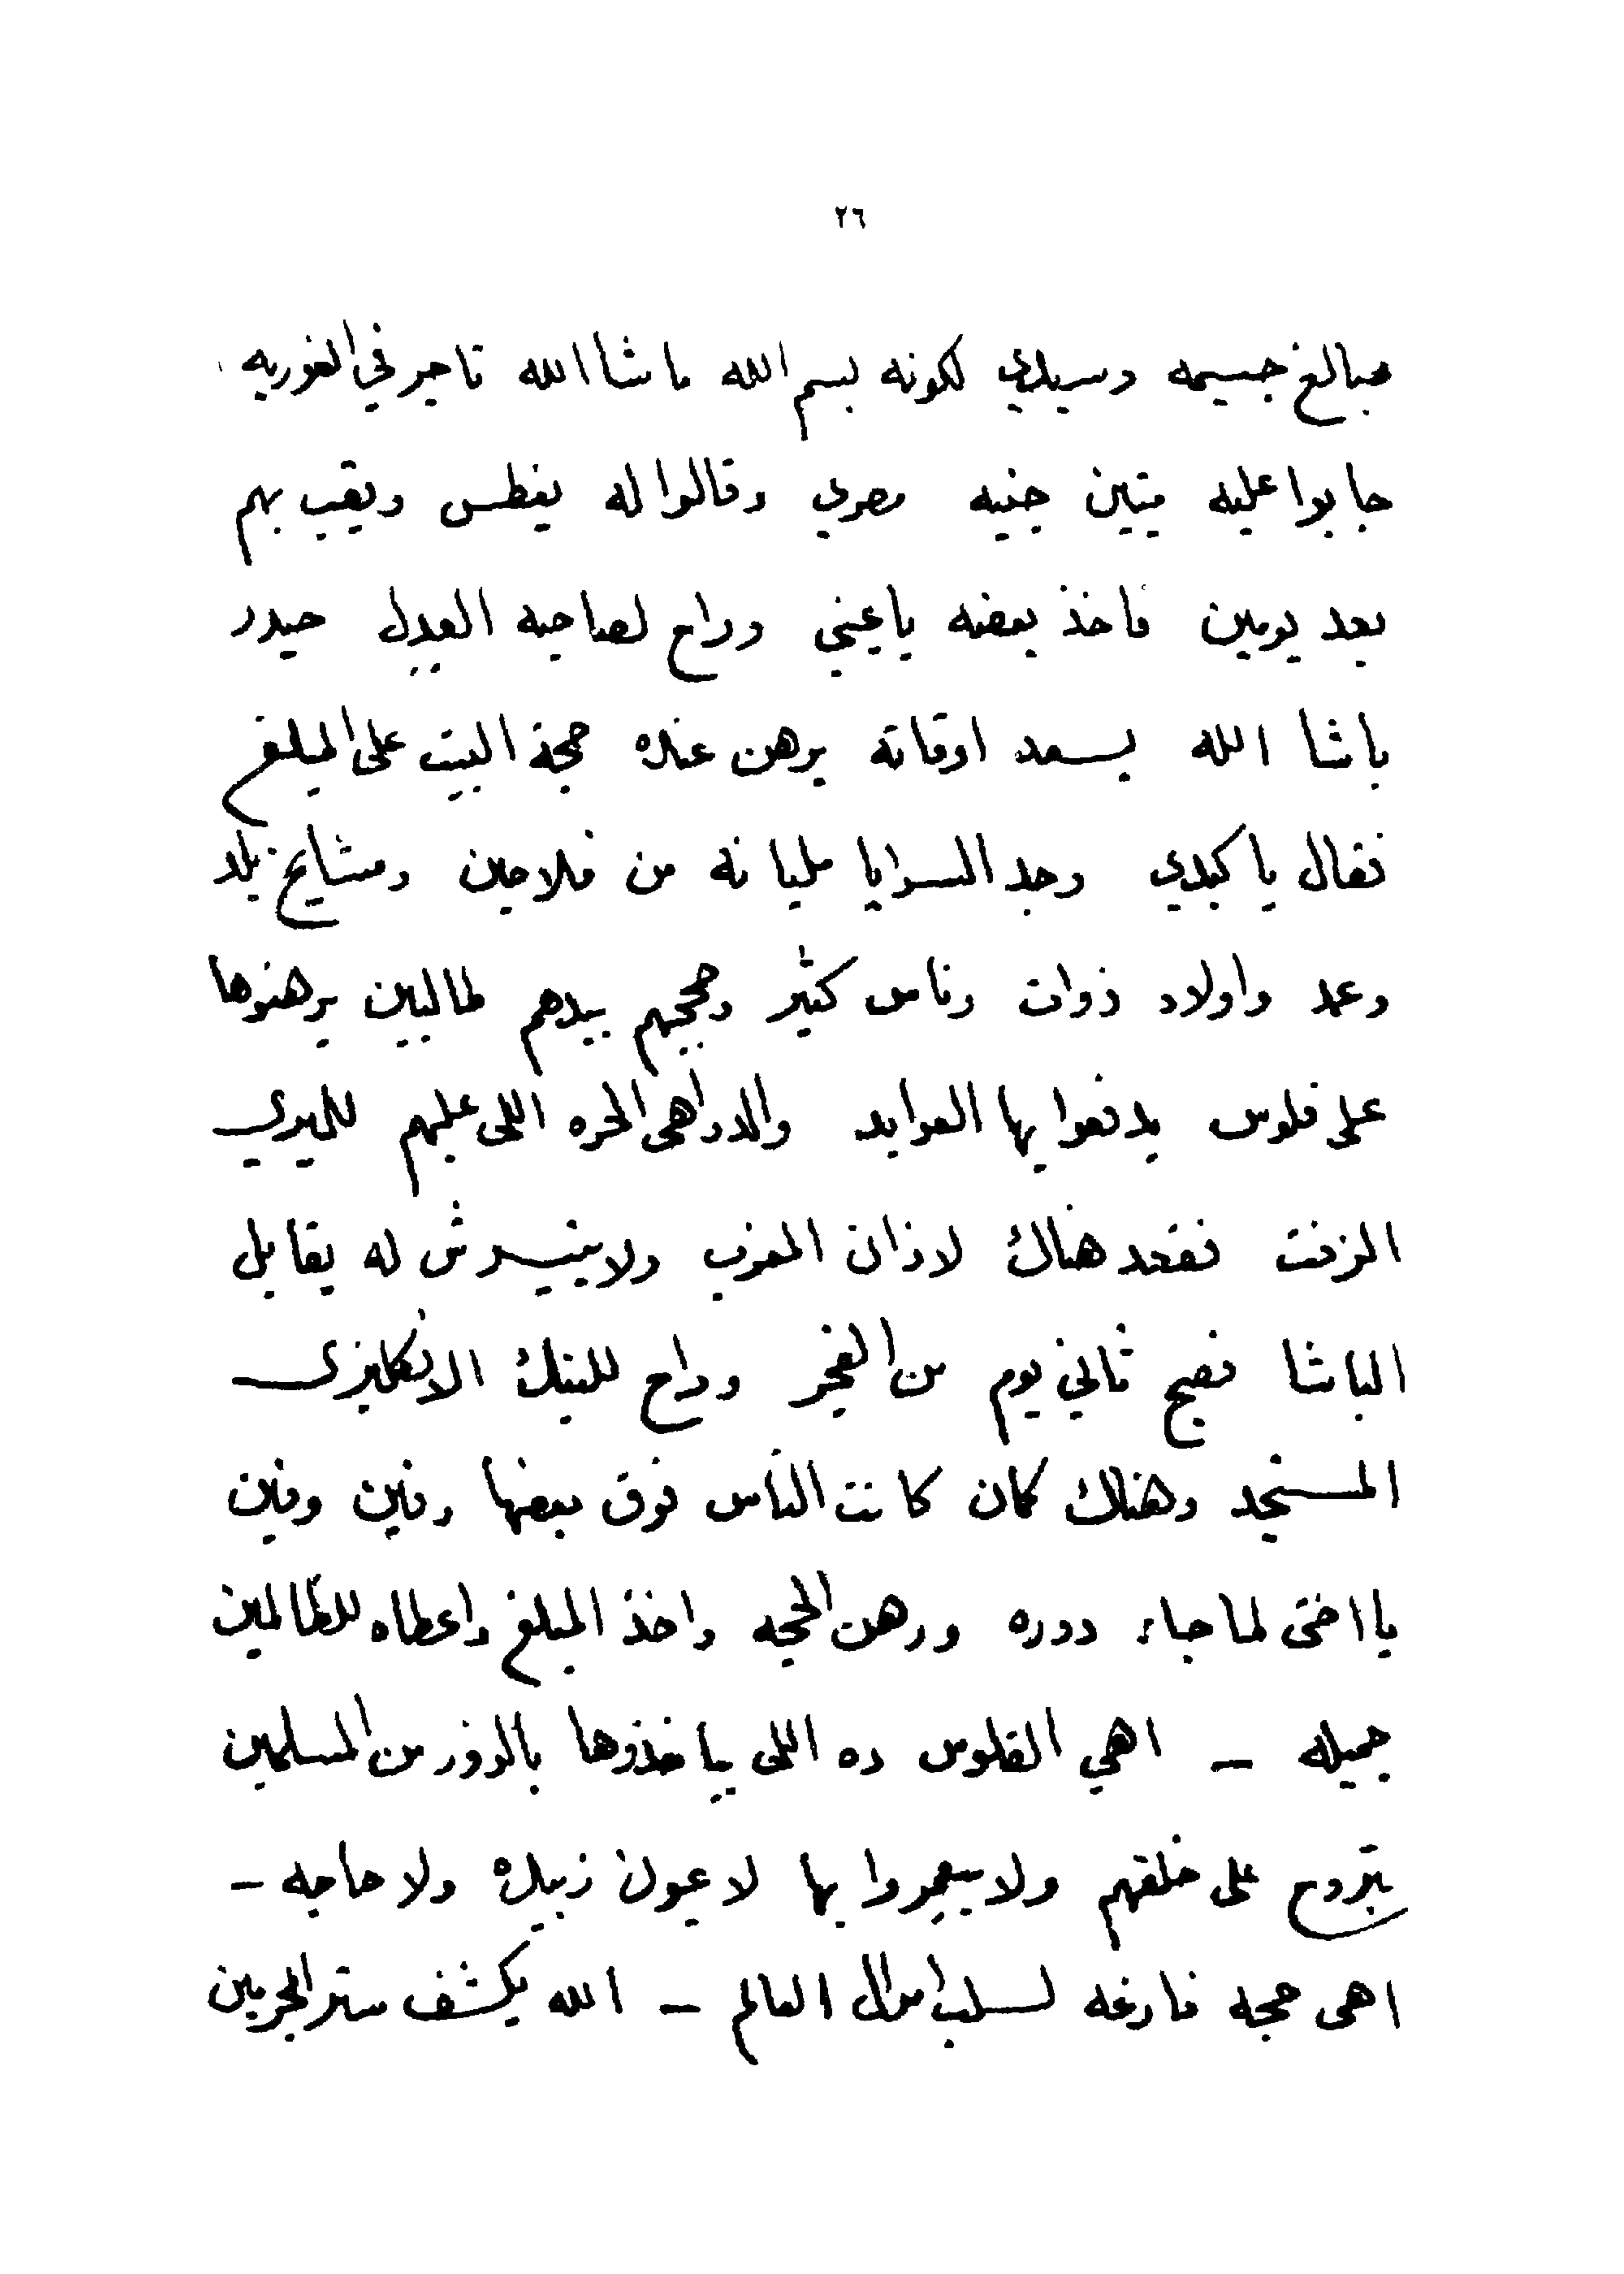 ٢٦
مبالغ جسيمه وسيدي لكونه بسم الله ماشا الله تاجر في الغوريه
جابوا عليه ميتين جنيه مصري وقالوا له يغطس ويقب بهم
بعد يومين فاخذ بعضه ياعيني وراح لصاحبه العديل حيدر
باشا الله يسعد اوقاته يرهن عنده حجة البيت على المبلغ
فقال ياكبدي وجد السرايا مليانه من فلاحين ومشايخ بلد
وعمد واولاد ذوات وناس كثير وحججهم بيدهم طالبين يرهنوها
على فلوس يدفعوا بها العوايد والدواهى الحمره اللى عليهم للميري
الزفت فقعد هناك لاذان المغرب ولا يتيسرش له يقابل
الباشا فصبح ثاني يوم من الفجر وراح للبنك الانكليزى
المستجد وهناك كان كانت الناس فوق بعضها وفين وفين
يا اختى لما جاء دوره ورهن الحجه واخذ المبلغ واعطاه للظالمين
جميله – اهي الفلوس ده اللى بياخذوها بالزور من المسلمين
بتروح على خلقهم ولا بيعمروا بها لا عيون زبيده ولا حاجه –
اهى حجه فارغه لسلب اموال العالم – الله يكشف ستر المجرمين